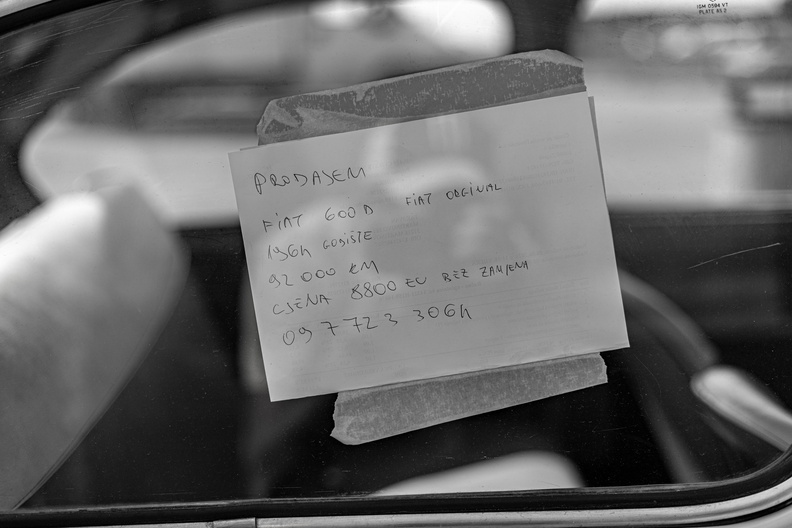 ISM 0584 VT
PLATE RS 2
PRODAJEM
FIAT 600 D FIAT ORGINAL
1964 GODIŠTE
92 000 KM
CJENA 8800 EU BEZ ZAMJENA
097 723 3064